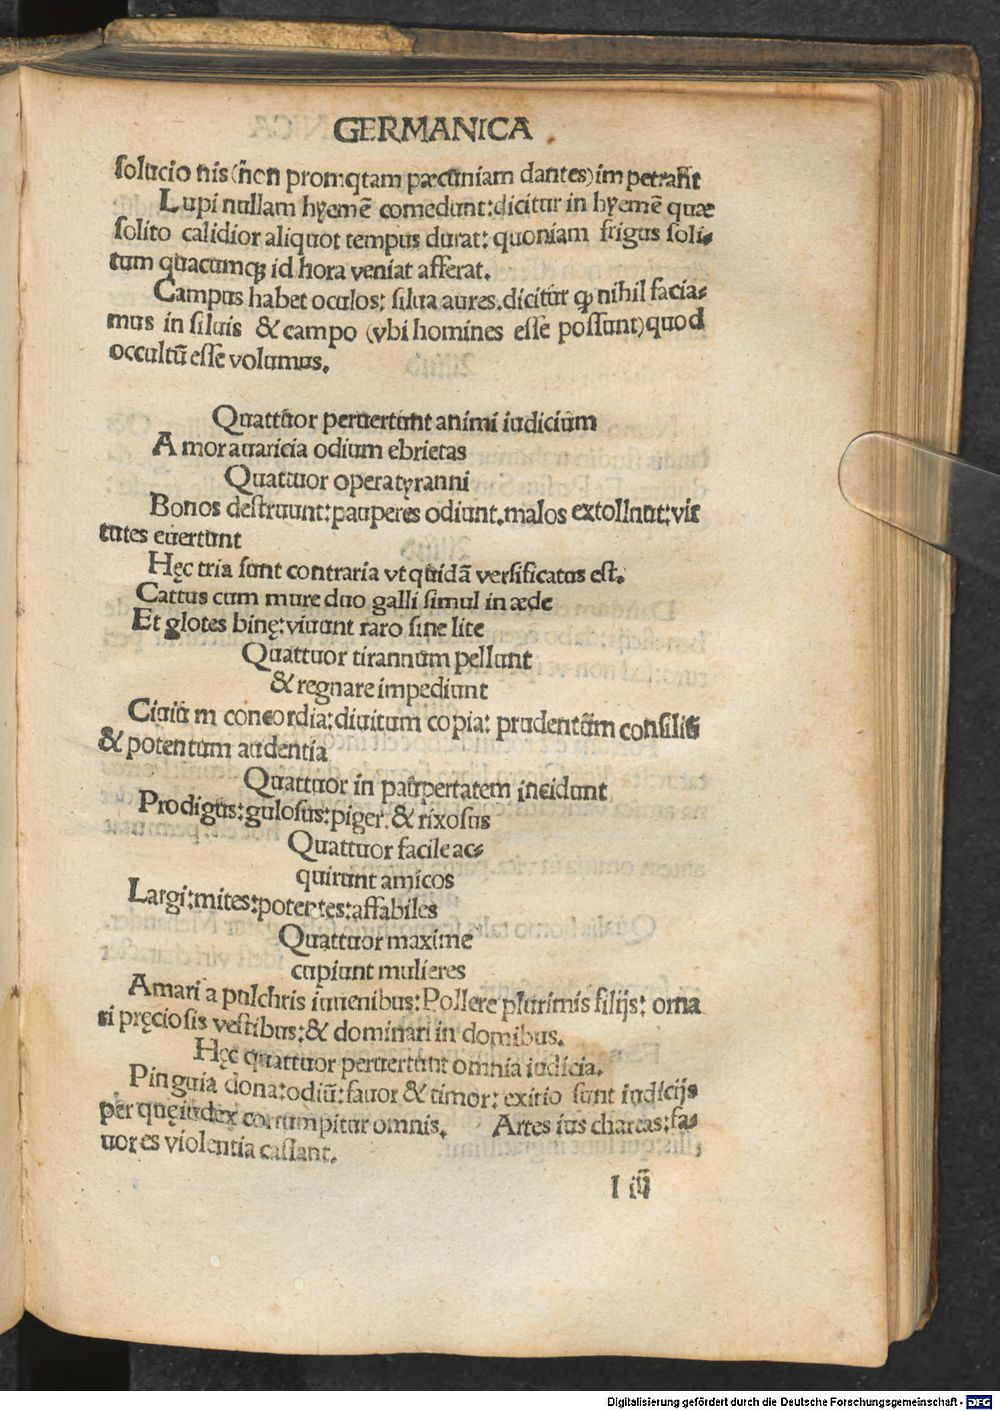 GERMANICA
solucio nis (nõn promꝗtam pæcuniam dantes) im petrassit
Lupi nullam hyemẽ comedunt: dicitur in hyemẽ quæ
solito calidior aliquot tempus durat: quoniam frigus soli⸗
tum quacumqꝫ id hora veniat afferat.
Campus habet oculos: silua aures. dicitur ꝙ nihil facia⸗
mus in siluis & campo (vbi homines esse possunt) quod
occultũ esse volumus.
Quattuor peruertunt animi iudicium
Amor auaricia odium ebrietas
Quattuor opera tyranni
Bonos destruunt: pauperes odiunt. malos extollnut: vir
tutes euertunt
Hęc tria sunt contraria vt quidã versificatus est.
Cattus cum mure duo galli simul in æde
Et glotes binę: viuunt raro sine lite
Quattuor tirannum pellunt
& regnare impediunt
Ciuiũ m concordia: diuitum copia: prudentũm consiliũ
& potentum audentia
Quattuor in paupertatem incidunt
Prodigus: gulosus: piger. & rixosus
Quattuor facile ac⸗
quirunt amicos
Largi: mites: potentes: affabiles
Quattuor maxime
cupiunt mulieres
Amari a pulchris iuuenibus: Pollere plurimis filijs: orna
ri pręciosis vestibus: & dominari in domibus.
Hęc quattuor peruertunt omnia iudicia.
Pinguia dona: odiũ: fauor & timor: exitio sunt iudicijs
per quę iudex corrumpitur omnis. Artes ius chartas: fa⸗
uores violentia cassant.
I iiij
Digitalisierung gefördert durch die Deutsche Forschungsgemeinschaft - DFG